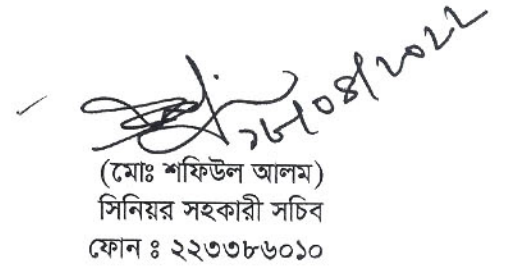 ১৮/০৪/২০২২
(মোঃ শফিউল আলম)
সিনিয়র সহকারী সচিব
ফোন ঃ ২২৩৩৮৬০১০